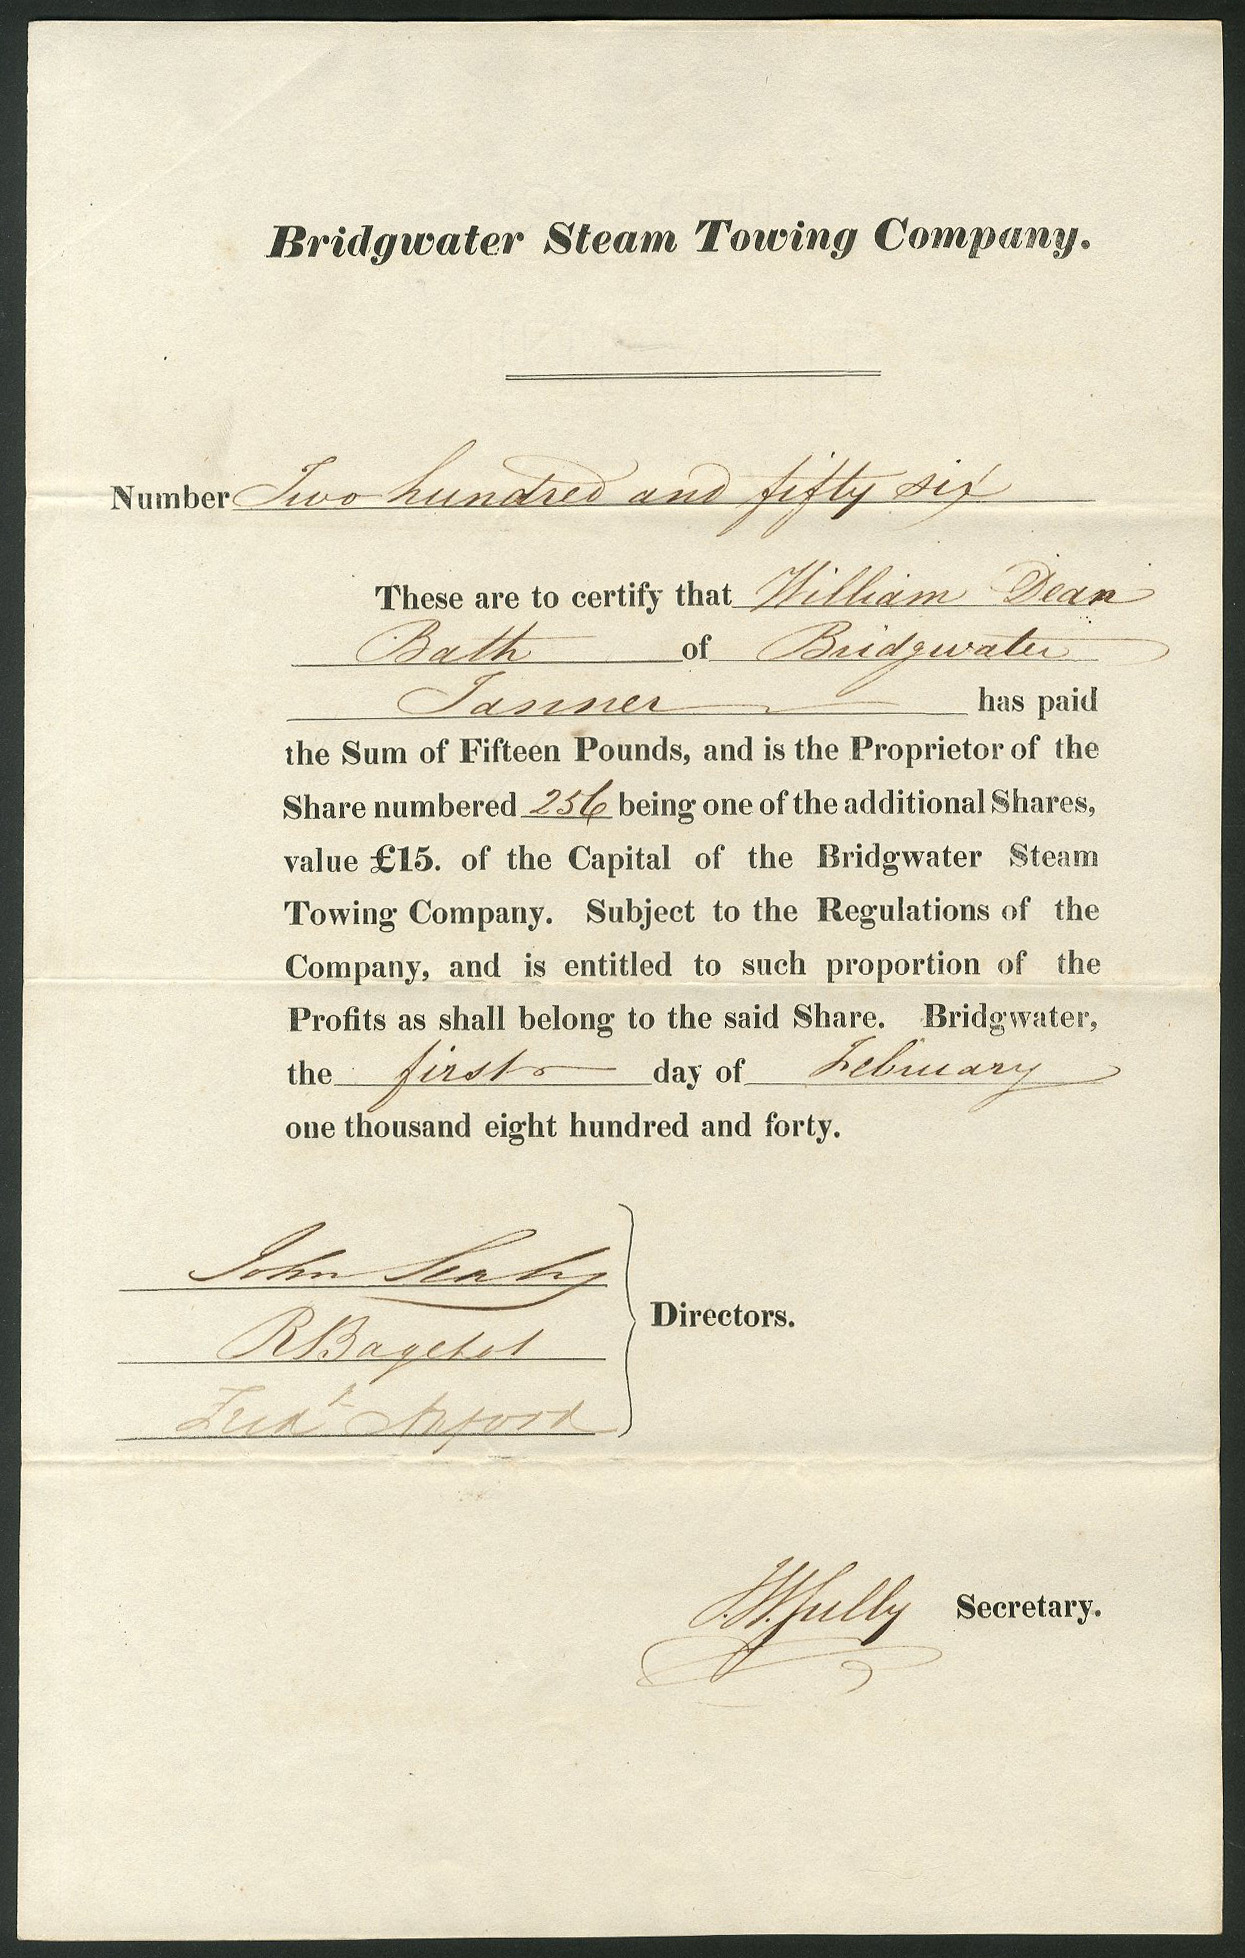 Bridgwater Steam Towing Company.
Number Two hundred and fifty six
These are to certify that William Dean
Bath of Bridgwater
Tanner has paid
the Sum of Fifteen Pounds, and is the Proprietor of the
Share numbered 256 being one of the additional Shares,
value £15. of the Capital of the Bridgwater Steam
Towing Company. Subject to the Regulations of the
Company, and is entitled to such proportion of the
Profits as shall belong to the said Share. Bridgwater,
the first day of February
one thousand eight hundred and forty.
John
R Bagehot
Directors.
Fredk Axford
Secretary.